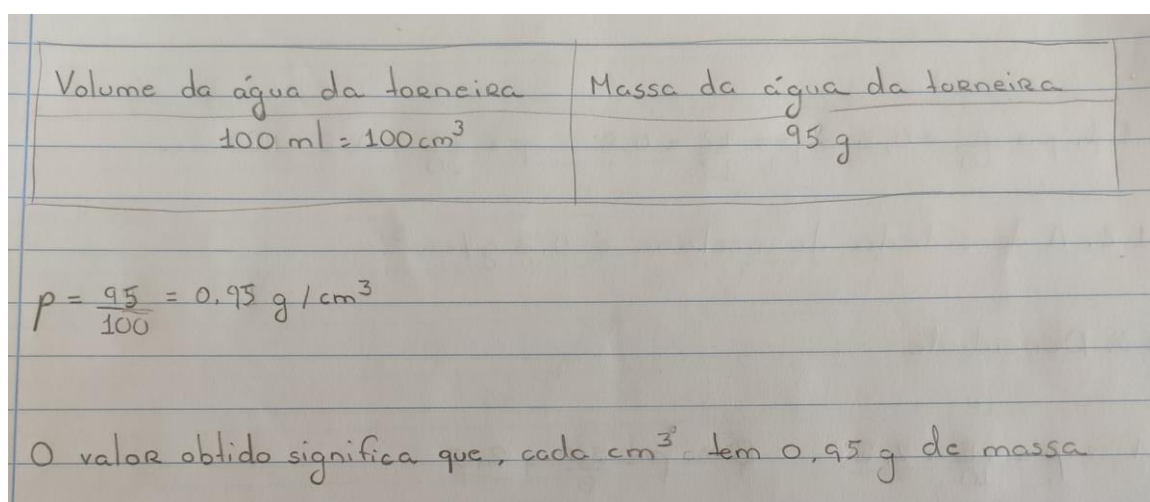 Volume da água da torneira
Massa da água da torneira
100 ml = 100 cm³
95 g
p = 95/100 = 0,95 g / cm³
O valor obtido significa que, cada cm³ tem 0,95 g de massa